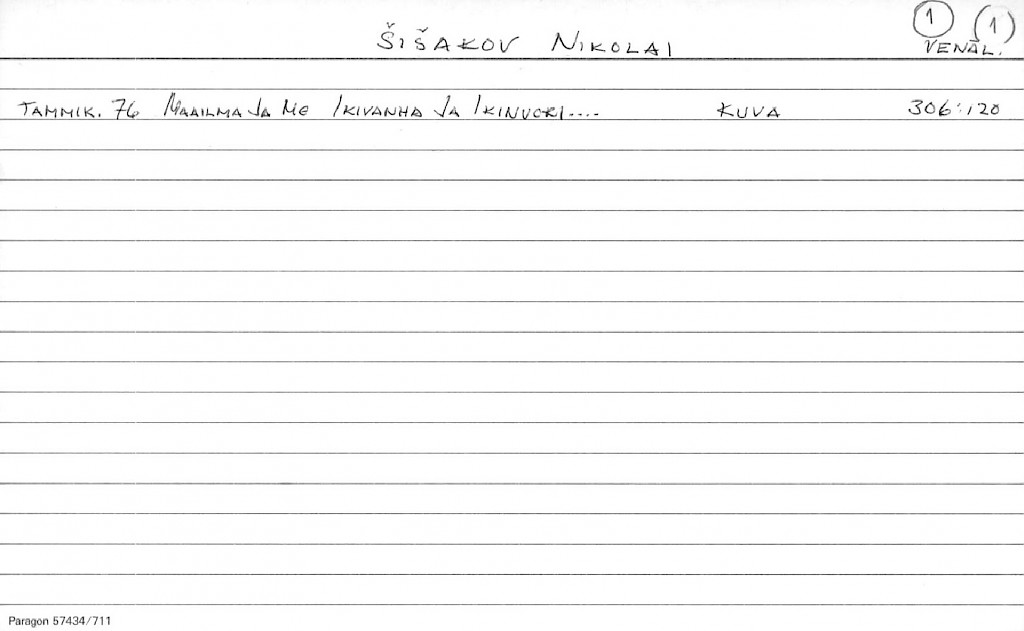 ŠIŠAKOV NIKOLAI
1 (1)
VENÄL.
TAMMIK. 76 MAAILMA JA ME IKIVANHA JA IKINUORI.... KUVA 306:120
Paragon 57434/711